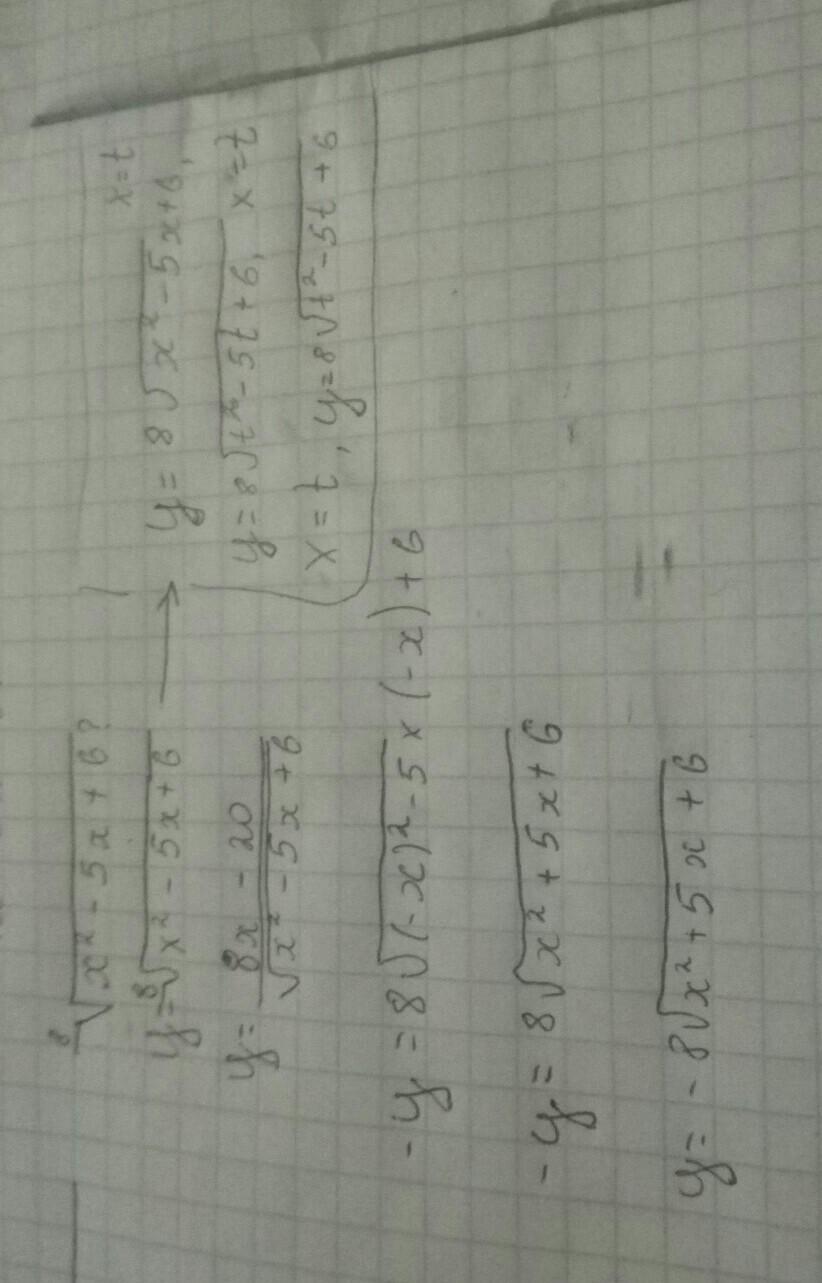 ⁸√(x² - 5x + 6) ?
y = ⁸√(x² - 5x + 6) → y = 8√(x² - 5x + 6), x = t
y = 8√(t² - 5t + 6), x = t
x = t, y = 8√(t² - 5t + 6)
y = (8x - 20)/√(x² - 5x + 6)
-y = 8√((-x)² - 5 × (-x) + 6)
-y = 8√(x² + 5x + 6)
y = -8√(x² + 5x + 6)